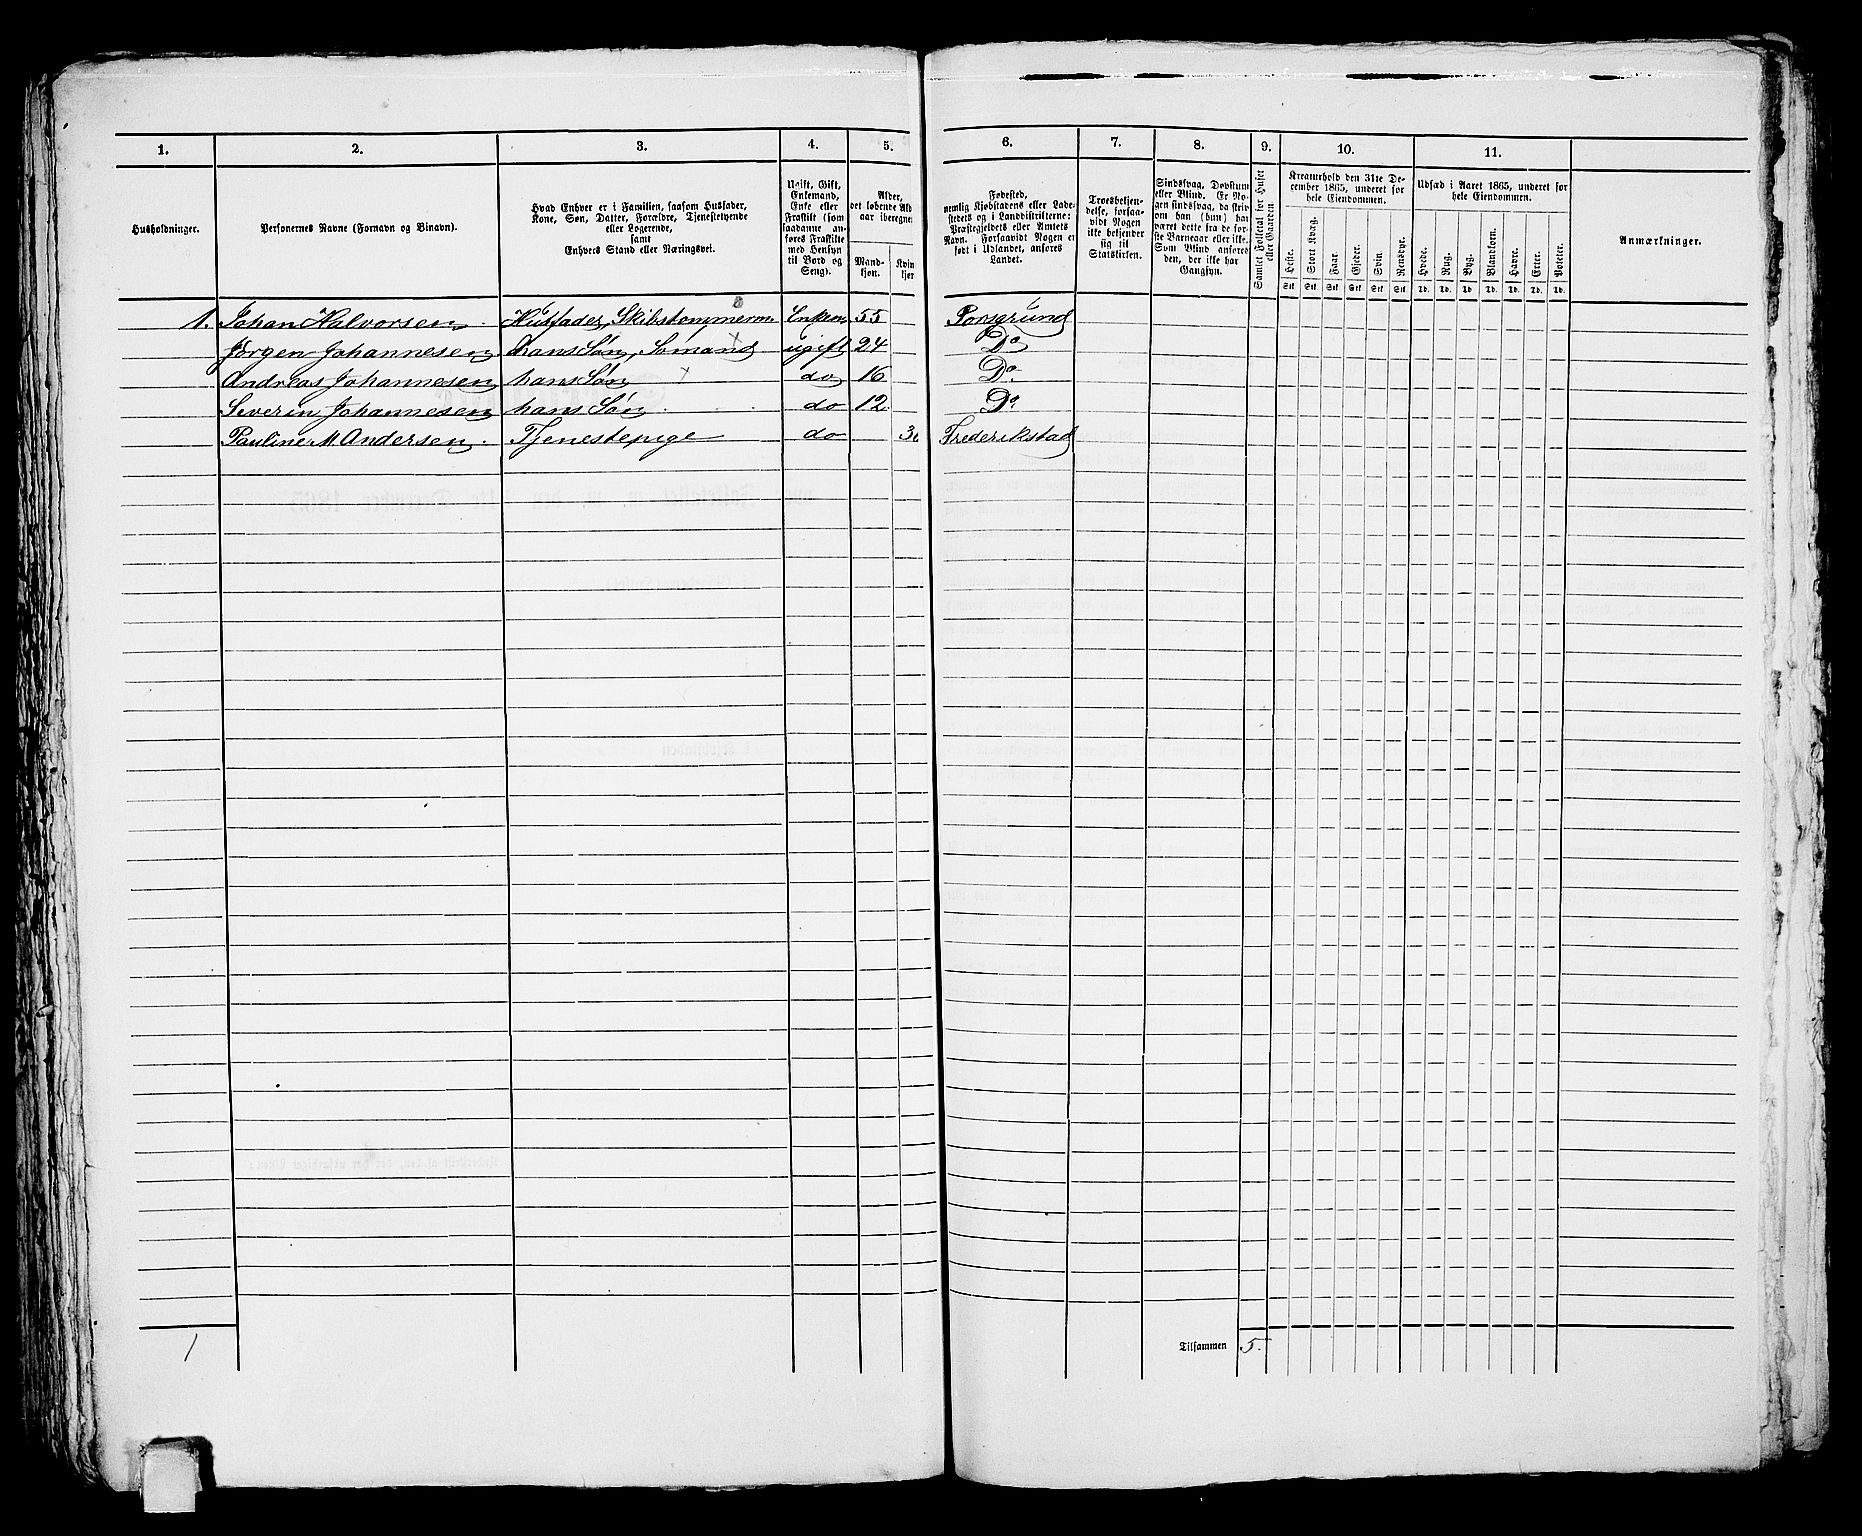 1. 2. 3. 4. 5. 6. 7. 8. 9. 10. 11.
Husholdninger.
Personernes Navne (Fornavn og Binavn).
Hvad Enhver er i Familien, saasom Husfader,
Kone, Søn, Datter, Forældre, Tjenestetyende
eller Logerende,
samt
Enhvers Stand eller Næringsvei.
Ugift, Gift,
Enkemand,
Enke eller
Fraskilt (som
saadanne an-
føres Fraskilte
med Hensyn
til Bord og
Seng).
Alder,
det løbende Al
aar iberegne
Mand-
kjøn.
Kvin
kjø
Fødested,
nemlig Kjøbstadens eller Lade-
stedets og i Landdistrikterne:
Præstegjeldets eller Amtets
Navn. Forsaavidt Nogen er
født i Udlandet, anføres
Landet.
Troesbekjen-
delse, forsaa-
vidt Nogen
ikke bekjender
sig til
Statskirken.
Sindssvag, Døvstum
eller Blind. Er No-
gen sindssvag, da skriv
om han (hun) har
været dette fra de før-
ste Barneaar eller ikke.
Som Blind anføres
den, der ikke har
Gangsyn.
Samlet Folketal for Huset
eller Gaarden
Kreaturhold den 31te De-
cember 1865, underet for
hele Eiendommen.
Heste. Stort Kvæg. Faar. Gjeder. Svin. Rensdyr.
Stk Stk Stk Stk Stk Stk
Udsæd i Aaret 1865, underet for
hele Eiendommen.
Hvede. Rug. Byg. Blandkorn. Havre. Erter. Poteter.
Td. Td. Td. Td. Td. Td. Td.
Anmærkninger.
1. Johan Halvorsen Husfader, Skibstømmerm Enkem 55 Porsgrund
Jørgen Johannesen hans Søn, Sømand ugift 24 Do
Andreas Johannesen hans Søn do 16 Do
Severin Johannesen hans Søn do 12 Do
Pauline M Andersen Tjenestepige do Frederikstad
1
Tilsammen 5.